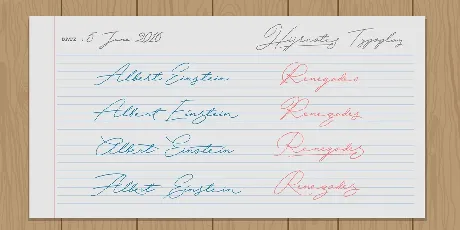 DATE : 6 June 2016
Albert Einstein Renegades
Albert Einstein Renegades
Albert Einstein Renegades
Albert Einstein Renegades